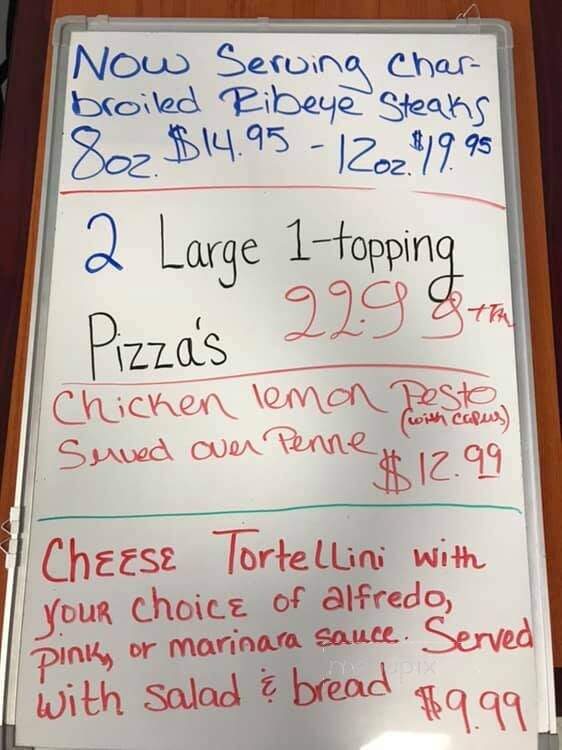 Now Serving Char-
broiled Ribeye Steaks
8oz. $14.95 - 12oz. $19.95
2 Large 1-topping
Pizza's 22.99
Chicken lemon Pesto
(with capers)
Served over Penne
$12.99
Cheese Tortellini with
your choice of alfredo,
pink, or marinara sauce. Served
with salad & bread $9.99